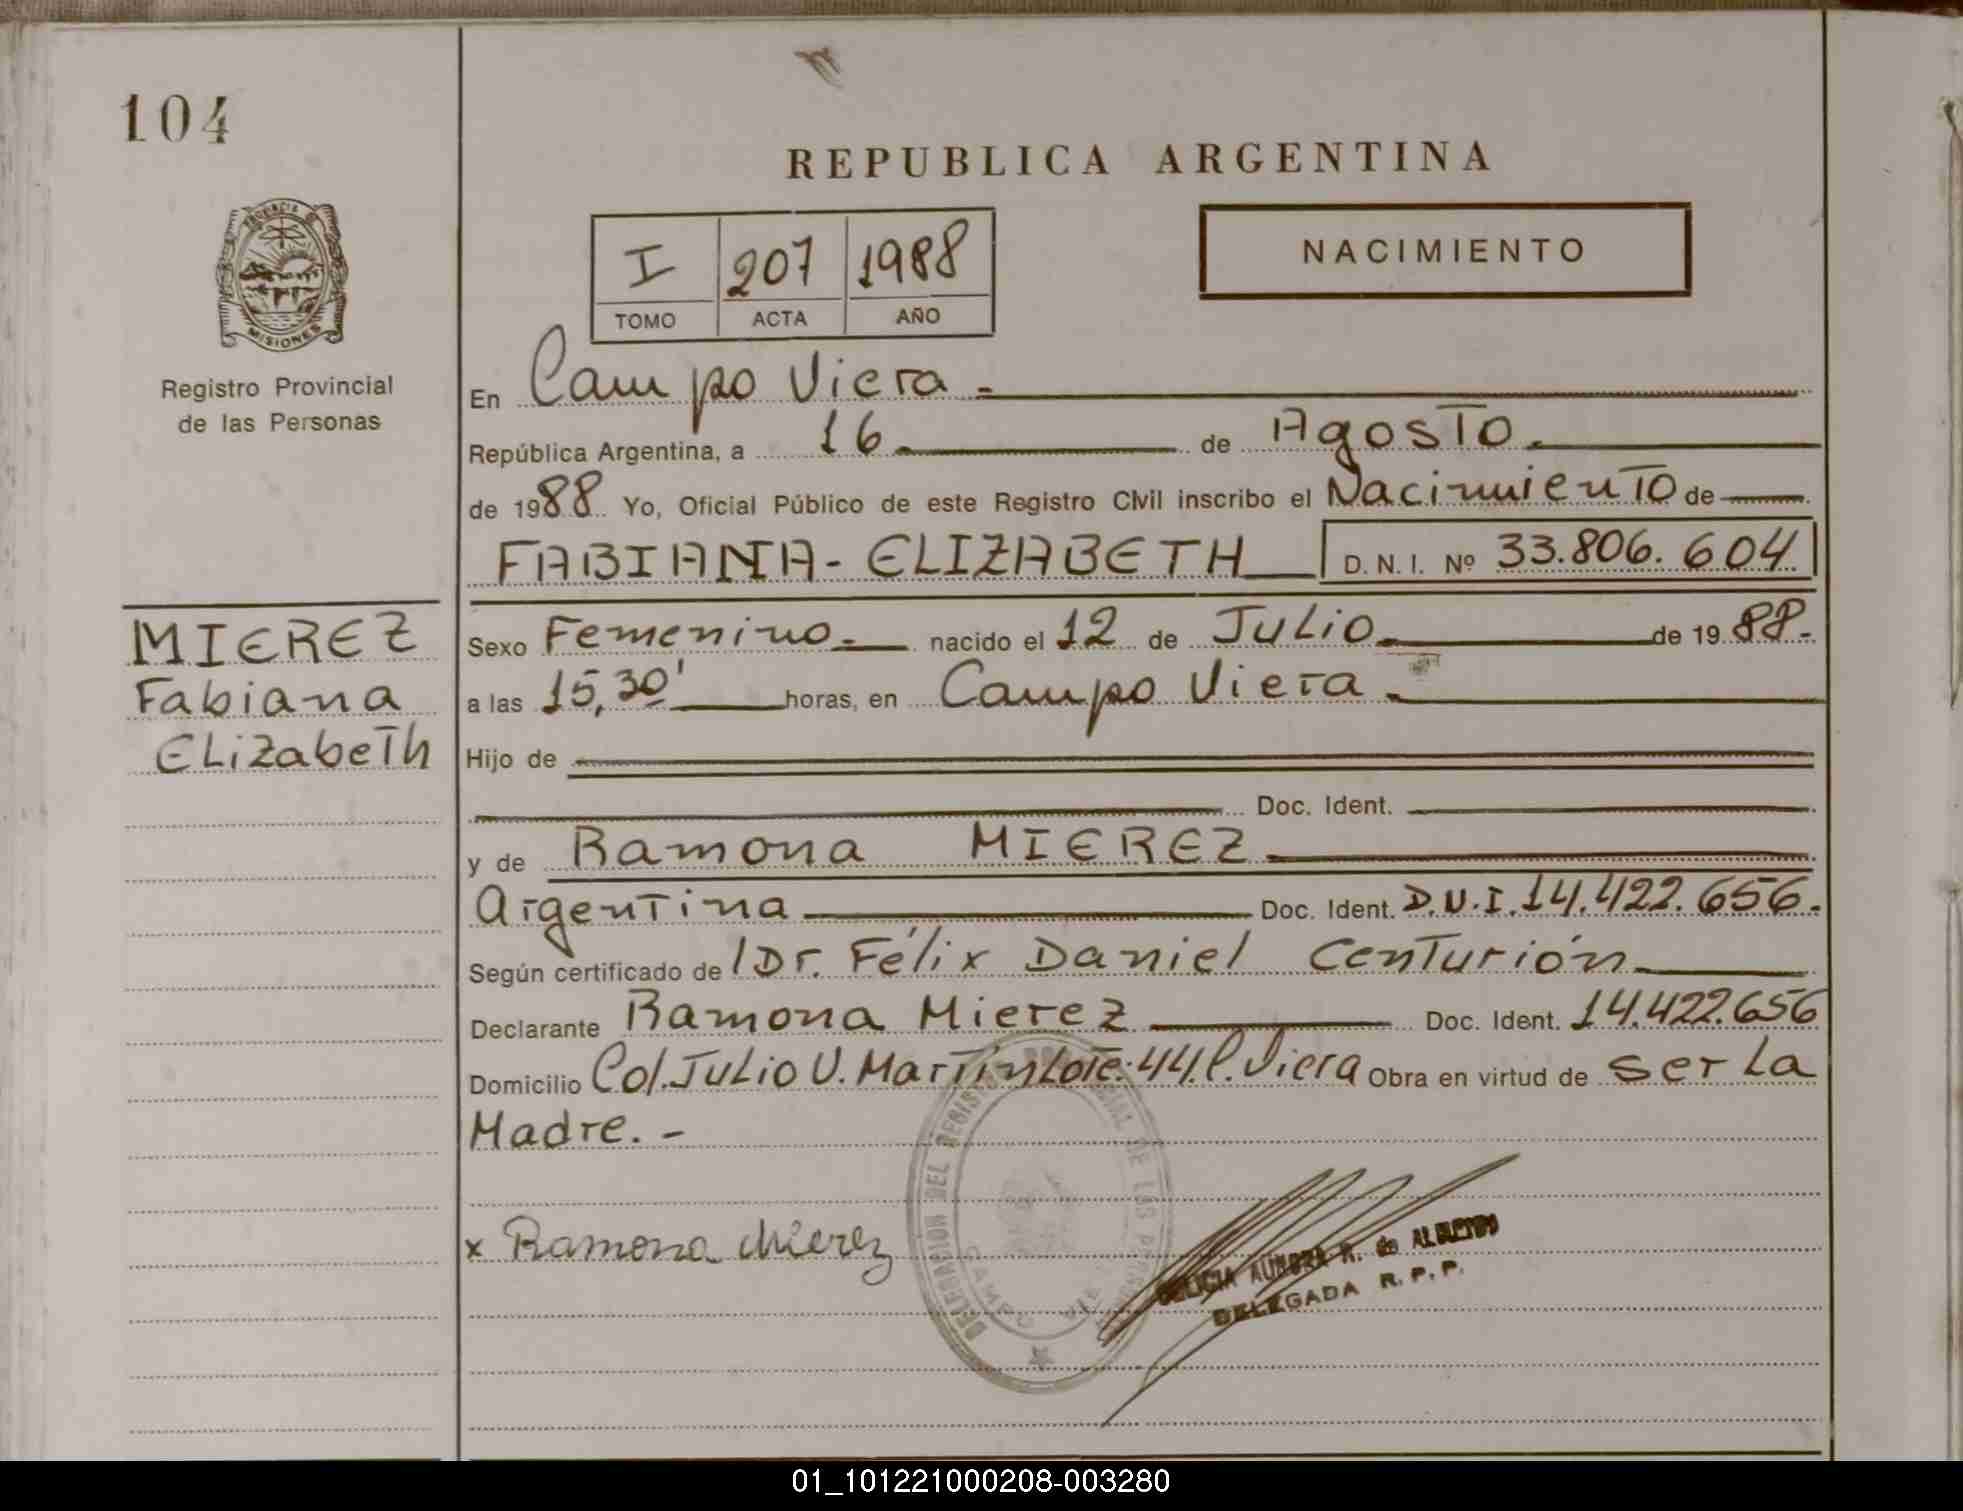 104
REPUBLICA ARGENTINA
PROVINCIA DE
MISIONES
I 207 1988
TOMO ACTA AÑO
NACIMIENTO
Registro Provincial
de las Personas
En Campo Viera -
República Argentina, a 16 de Agosto.
de 1988 Yo, Oficial Público de este Registro Civil inscribo el Nacimiento de
FABIANA - ELIZABETH D. N. I. Nº 33.806.604
MIEREZ
Fabiana
Elizabeth
Sexo Femenino.- nacido el 12 de Julio de 19 88.-
a las 15,30' horas, en Campo Viera.
Hijo de
Doc. Ident.
y de Ramona MIEREZ
Argentina Doc. Ident. D.N.I. 14.422.656.
Según certificado de Dr. Félix Daniel Centurión
Declarante Ramona Mierez Doc. Ident. 14.422.656
Domicilio Col. Julio U. Martin Lote: 44 C. Viera Obra en virtud de ser la
Madre. -
x Ramona Mierez
DELEGACION DEL REGISTRO PROVINCIAL DE LAS PERSONAS
AURORA R. de
DELEGADA R. P. P.
01_101221000208-003280